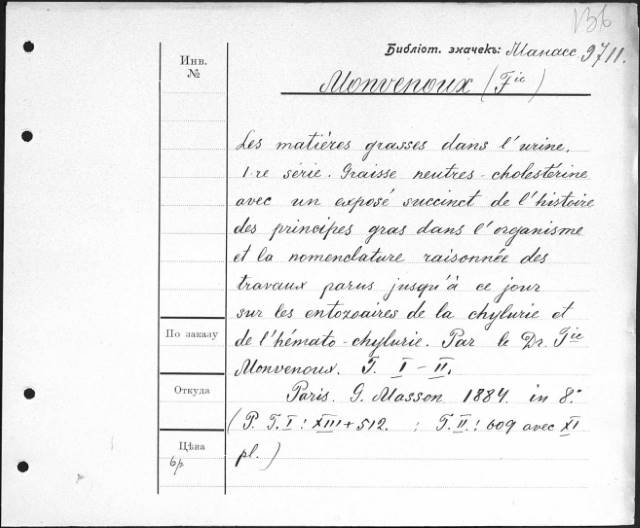 136
Библіот. значекъ: Манасс 9711.
Инв.
№
Monvenoux (Fic)
Les matières grasses dans l'urine.
1-re série. Graisse neutres-cholestérine
avec un exposé succinct de l'histoire
des principes gras dans l'organisme
et la nomenclature raisonnée des
travaux parus jusqu'à ce jour
sur les entozoaires de la chylurie et
По заказу
de l'hémato-chylurie. Par le Dr. Fic
Monvenoux. T. I–II.
Откуда
Paris. G. Masson 1884. in 8°
(P. T. I: XIII+512. : T. II: 609 avec XI
Цѣна
6р
pl.)